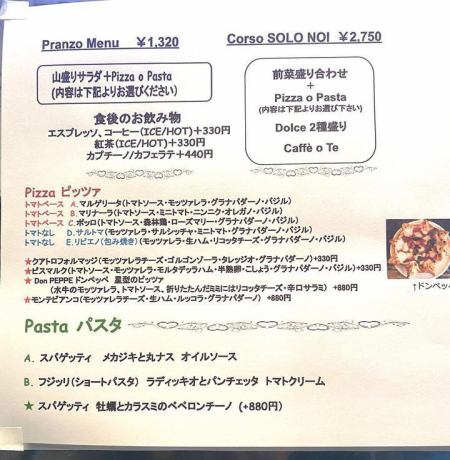 Pranzo Menu ¥1,320
Corso SOLO NOI ¥2,750
山盛りサラダ＋Pizza o Pasta
(内容は下記よりお選びください)
食後のお飲み物
エスプレッソ、コーヒー(ICE/HOT)＋330円
紅茶(ICE/HOT)＋330円
カプチーノ/カフェラテ＋440円
前菜盛り合わせ
＋
Pizza o Pasta
(内容は下記よりお選び下さい)
Dolce 2種盛り
Caffè o Te
Pizza ピッツァ
トマトベース A.マルゲリータ(トマトソース・モッツァレラ・グラナパダーノ・バジル)
トマトベース B.マリナーラ(トマトソース・ミニトマト・ニンニク・オレガノ・バジル)
トマトベース C.ポッロ(トマトソース・森林鶏・ローズマリー・グラナパダーノ・バジル)
トマトなし D.サルトマ(モッツァレラ・サルシッチャ・ミニトマト・グラナパダーノ・バジル)
トマトなし E.リピエノ(包み焼き)(モッツァレラ・生ハム・リコッタチーズ・グラナパダーノ・バジル)
★クアトロフォルマッジ(モッツァレラチーズ・ゴルゴンゾーラ・タレッジオ・グラナパダーノ)+330円
★ビスマルク(トマトソース・モッツァレラ・モルタデッラハム・半熟卵・こしょう・グラナパダーノ・バジル)+330円
★ Don PEPPE ドンペッペ 星型のピッツァ
(水牛のモッツァレラ、トマトソース、折りたたんだミミにはリコッタチーズ・辛口サラミ) +880円
★モンテビアンコ(モッツァレラチーズ・生ハム・ルッコラ・グラナパダーノ) +880円
↑ドンペッ
Pasta パスタ
A. スパゲッティ メカジキと丸ナス オイルソース
B. フジッリ(ショートパスタ) ラディッキオとパンチェッタ トマトクリーム
★ スパゲッティ 牡蠣とカラスミのペペロンチーノ (+880円)